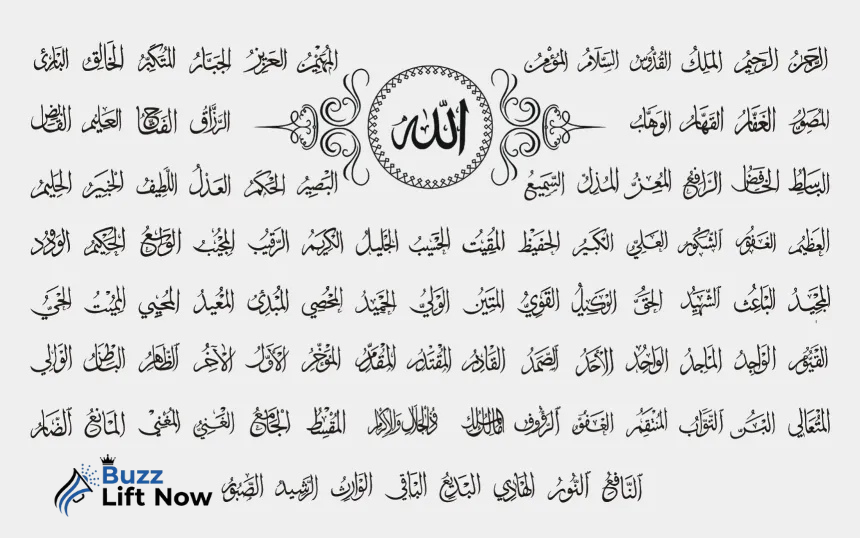 الرحمن الرحيم الملك القدوس السلام المؤمن المهيمن العزيز الجبار المتكبر الخالق البارئ
المصور الغفار القهار الوهاب الله الرزاق الفتاح العليم القابض
الباسط الخافض الرافع المعز المذل السميع البصير الحكم العدل اللطيف الخبير الحليم
العظيم الغفور الشكور العلي الكبير الحفيظ المقيت الحسيب الجليل الكريم الرقيب المجيب الواسع الحكيم الودود
المجيد الباعث الشهيد الحق الوكيل القوي المتين الولي الحميد المحصي المبدئ المعيد المحيي المميت الحي
القيوم الواجد الماجد الواحد الأحد الصمد القادر المقتدر المقدم المؤخر الأول الآخر الظاهر الباطن الوالي
المتعالي البر التواب المنتقم العفو الرؤوف مالك الملك ذو الجلال والإكرام المقسط الجامع الغني المغني المانع الضار
النافع النور الهادي البديع الباقي الوارث الرشيد الصبور
Buzz
Lift Now